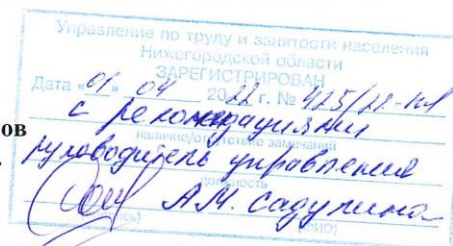 Управление по труду и занятости населения
Нижегородской области
ЗАРЕГИСТРИРОВАН
Дата «01» 04 2022 г. №
с рекомендациями
ов
наличие/отсутствие замечаний
руководитель управления
должность
А.М. Садулина
(ФИО)